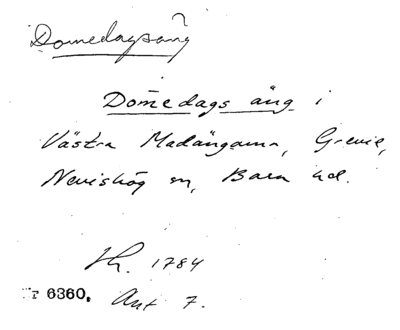 Domedagsäng
Domedags äng i
Västra Madängarna, Grevie,
Nevishög sn, Bara hd.
1784
nr 6360. Akt 7.